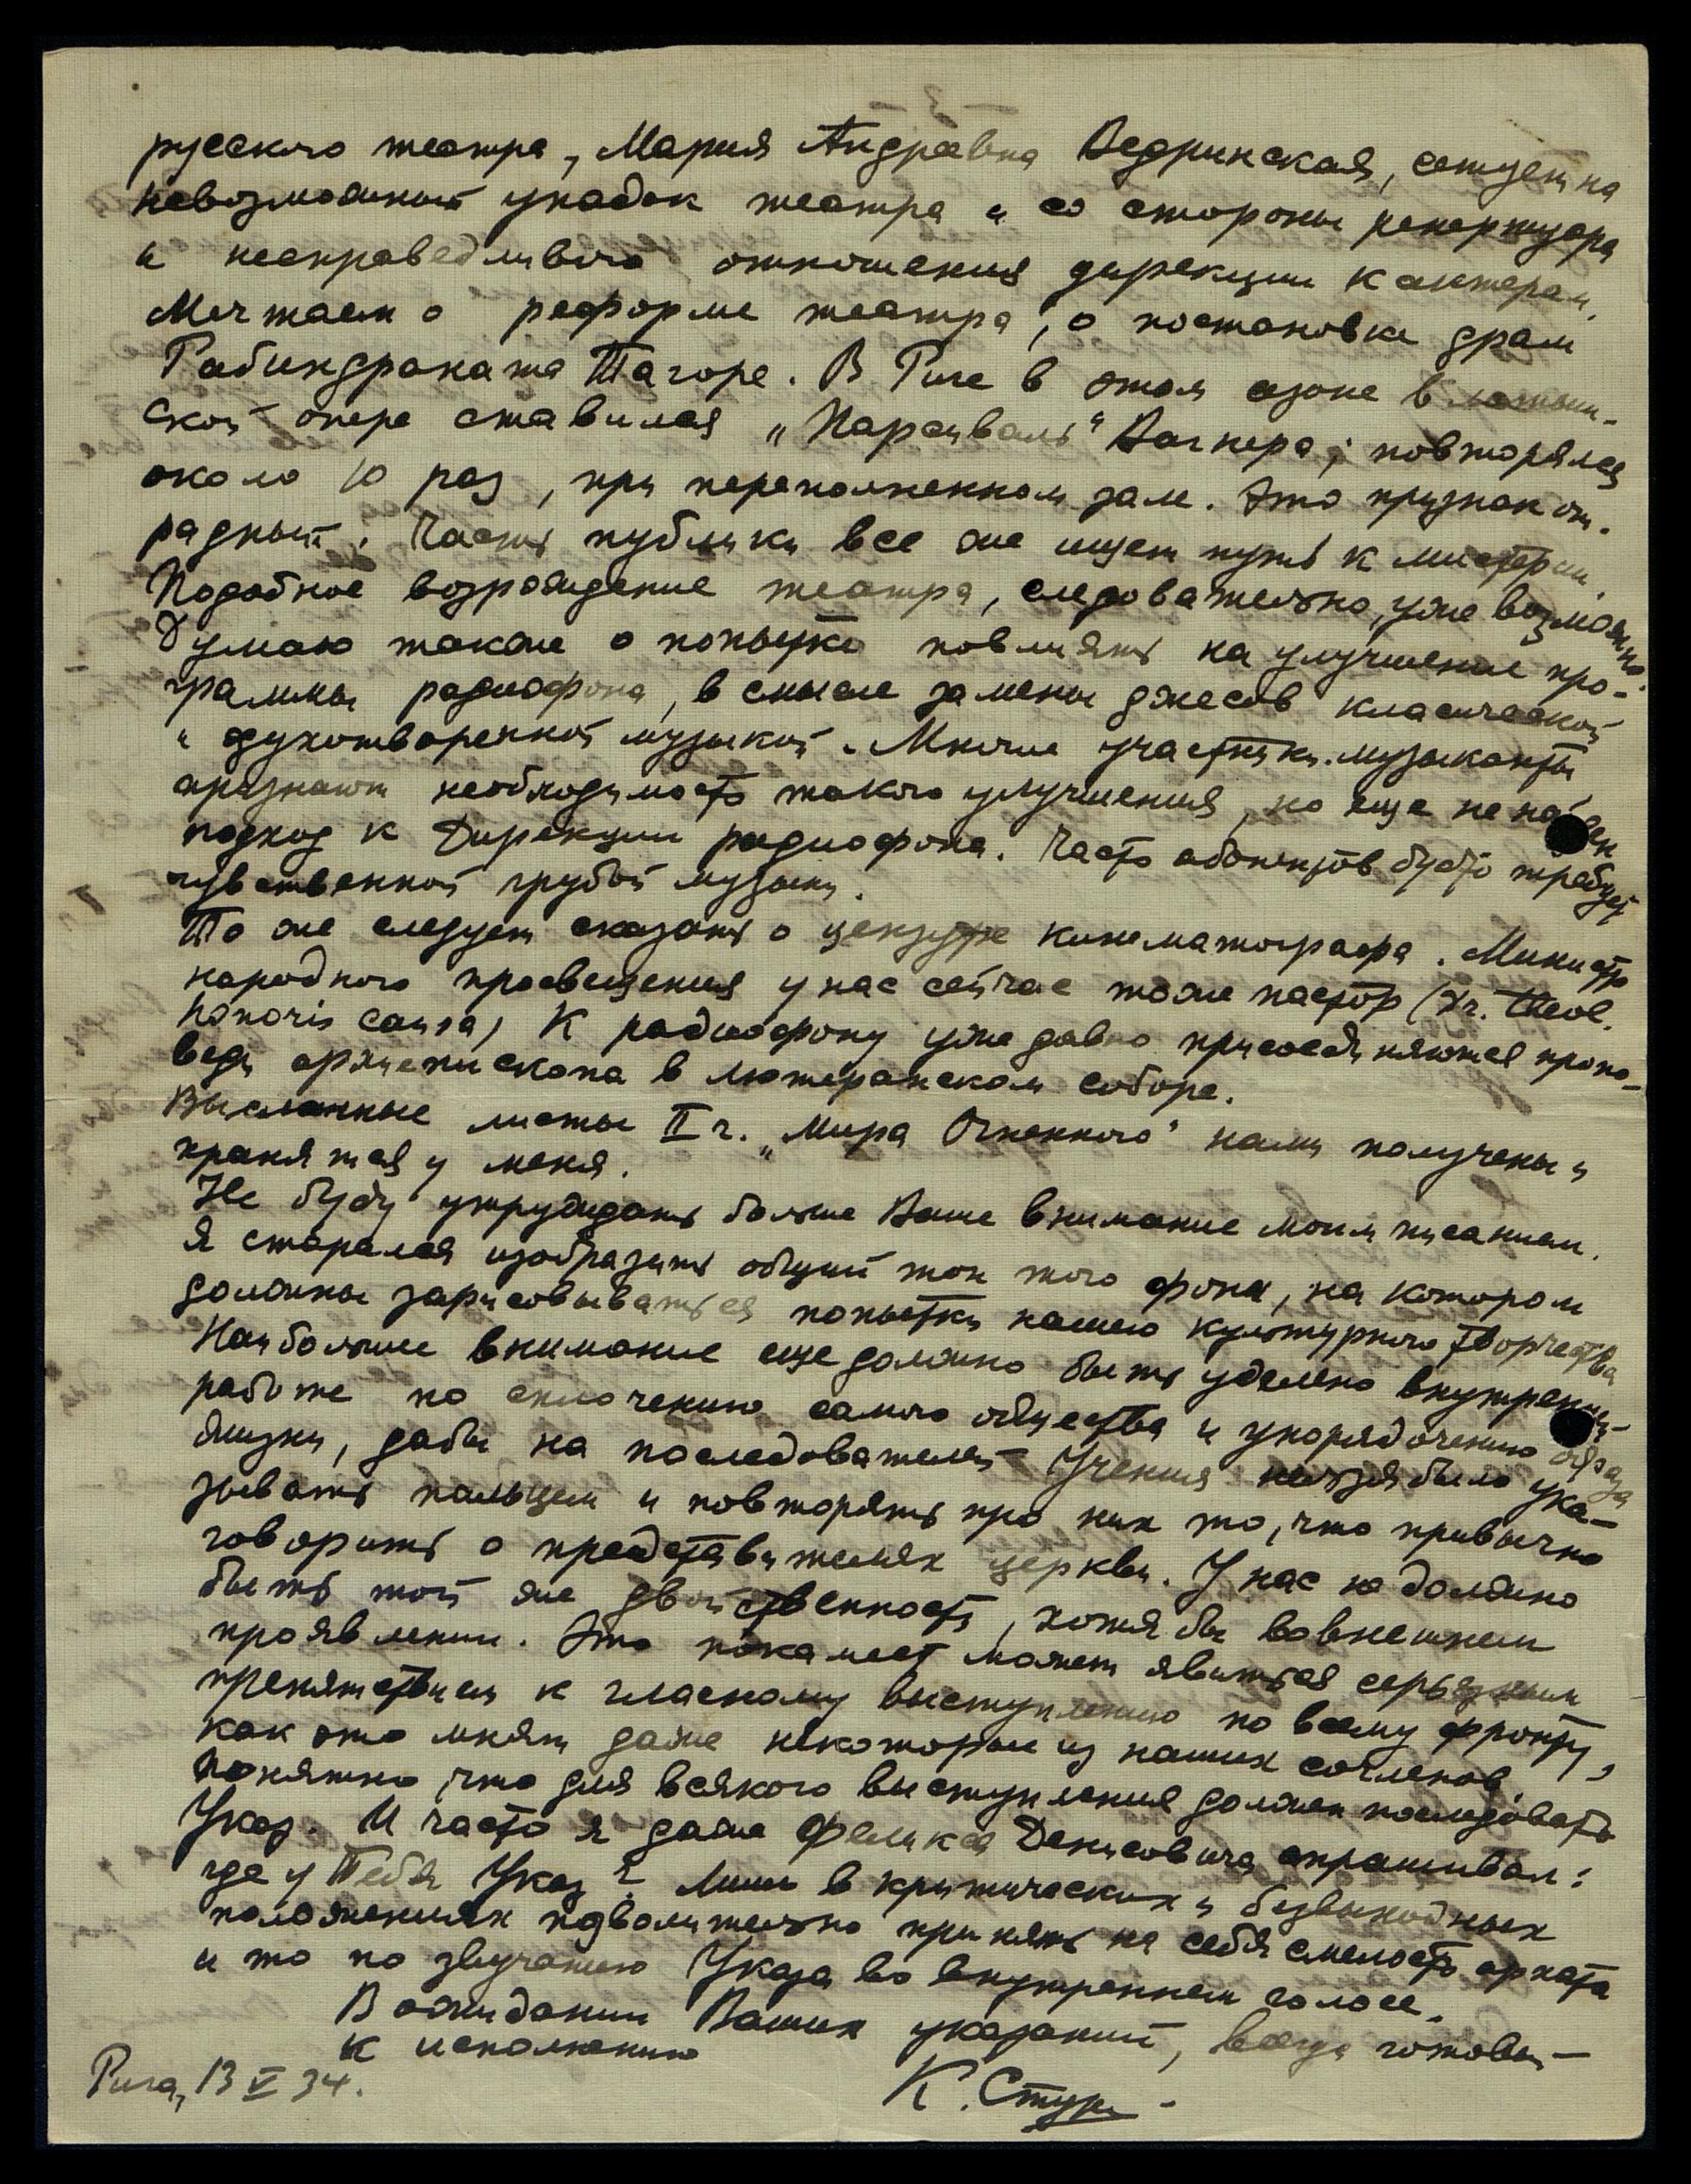 русского театра, Мария Андреевна Ведринская, сетует на
невозможный упадок театра и со стороны репертуара
и несправедливого отношения дирекции к актерам.
Мечтаем о реформе театра, о постановке драм
Рабиндраната Тагоре. В Риге в этом сезоне в латыш-
ской опере ставился „Парсиваль" Вагнера; повторялся
около 10 раз, при переполненном зале. Это признак от-
радный. Часть публики все же ищет путь к мистерии.
Подобное возрождение театра, следовательно, уже возможно.
Думаю также о попытке повлиять на улучшение про-
граммы радиофона, в смысле замены джесов класической
и духотворенной музыкой. Многие участники-музыканты
признают необходимость такого улучшения, но еще не найден
подход к Дирекции радиофона. Часть абонентов будто требует
чувственной грубой музыки.
То же следует сказать о цензуре кинематографа. Министр
народного просвещения у нас сейчас тоже пастор (Dr. theol.
honoris causa) К радиофону уже давно присоединяются пропо-
веди архиепископа в лютеранском соборе.
Высланные листы II ч. „Мира Огненного" нами получены и
хранятся у меня.
Не буду утруждать больше Ваше внимание моим писанием.
Я старался изобразить общий тон того фона, на котором
должны зарисовываться попытки нашего культурного творчества
Наибольшее внимание еще должно быть уделено внутренней
работе по сплочению самого общества и упорядочению образа
жизни, дабы на последователей Учения нельзя было ука-
зывать пальцем и повторять про них то, что привычно
говорить о представителях церкви. У нас не должно
быть той же двойственности, хотя бы во внешнем
проявлении. Это покамест может явиться серьезным
препятствием к гласному выступлению по всему фронту,
как это мнят даже некоторые из наших сочленов,
Понятно, что для всякого выступления должен последовать
Указ. И часто я даже Феликса Денисовича спрашивал:
где у Тебя Указ? Лишь в критических и безвыходных
положениях позволительно принять на себя смелость архата
и то по звучанию Указа во внутреннем голосе.
В ожидании Ваших указаний, всегда готовый
к исполнению
К. Стурe
Рига, 13 V 34.